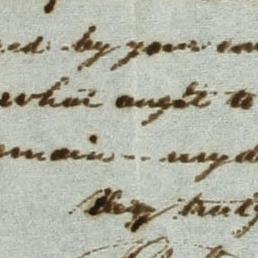 by your
what ought to
remain - my d
Very truly